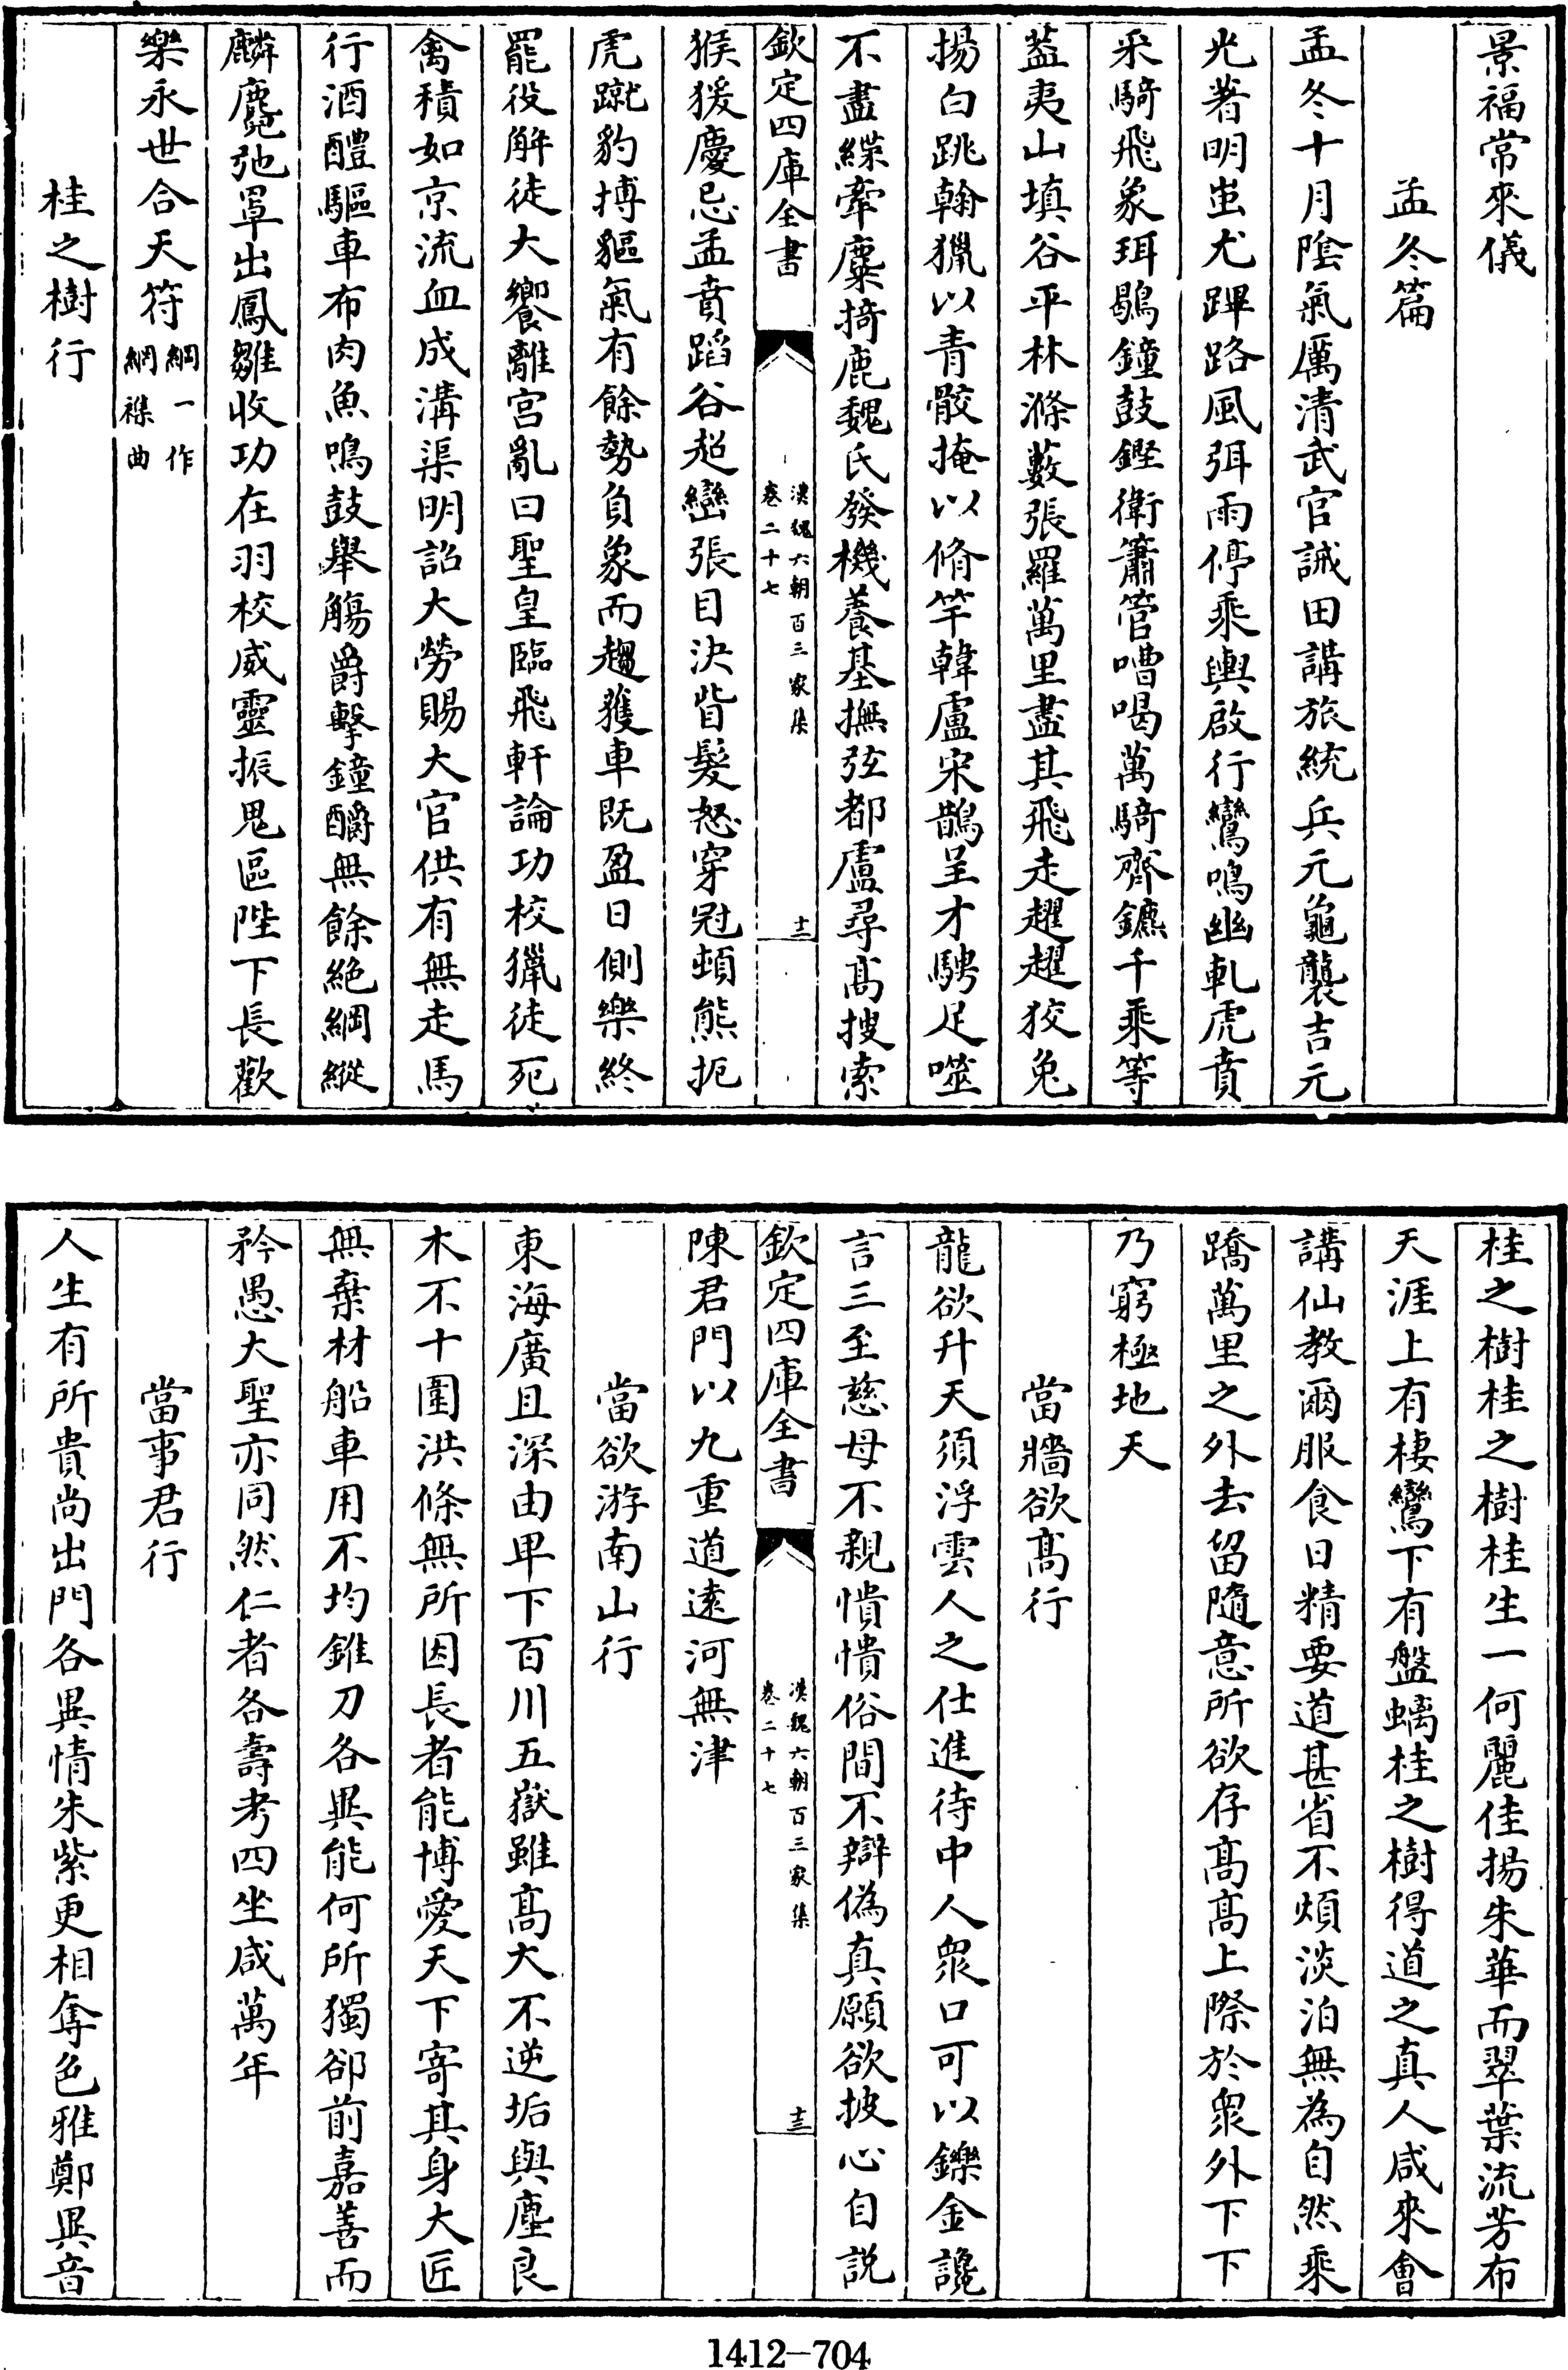 景福常來儀
孟冬篇
孟冬十月隂氣厲清武官誡田講旅統兵元龜襲吉元
光著明蚩尤蹕路風弭雨停乘輿啟行鸞鳴幽軋虎賁
采騎飛象珥鶡鐘鼓鏗衛簫管嘈喝萬騎齊鑣千乘等
葢夷山填谷平林滌藪張羅萬里盡其飛走趯趯狡兔
揚白跳翰獵以青骹掩以脩竿韓盧宋鵲呈才騁足噬
不盡緤牽麋掎鹿魏氏發機養基撫弦都盧尋髙搜索
欽定四庫全書
漢魏六朝百三家集
卷二十七
十二
猴猨慶忌孟賁蹈谷超巒張目決眥髮怒穿冠頓熊扼
虎蹴豹搏貙氣有餘勢負象而趨獲車既盈日側樂終
罷役解徒大饗離宫亂曰聖皇臨飛軒論功校獵徒死
禽積如京流血成溝渠明詔大勞賜大官供有無走馬
行酒醴驅車布肉魚鳴鼓舉觴爵擊鐘釂無餘絶綱縱
麟麑弛罩出鳳雛收功在羽校威靈振鬼區陛下長歡
樂永世合天符綱一作網襍曲
桂之樹行
桂之樹桂之樹桂生一何麗佳揚朱華而翠葉流芳布
天涯上有棲鸞下有盤螭桂之樹得道之真人咸來會
講仙教爾服食日精要道甚省不煩淡泊無為自然乘
蹻萬里之外去留隨意所欲存髙髙上際於衆外下下
乃窮極地天
當牆欲髙行
龍欲升天須浮雲人之仕進待中人衆口可以鑠金讒
言三至慈母不親憒憒俗間不辯偽真願欲披心自説
欽定四庫全書
漢魏六朝百三家集
卷二十七
十三
陳君門以九重道逺河無津
當欲游南山行
東海廣且深由卑下百川五嶽雖髙大不逆垢與塵良
木不十圍洪條無所因長者能博愛天下寄其身大匠
無棄材船車用不均錐刀各異能何所獨郤前嘉善而
矜愚大聖亦同然仁者各壽考四坐咸萬年
當事君行
人生有所貴尚出門各異情朱紫更相奪色雅鄭異音
1412—704